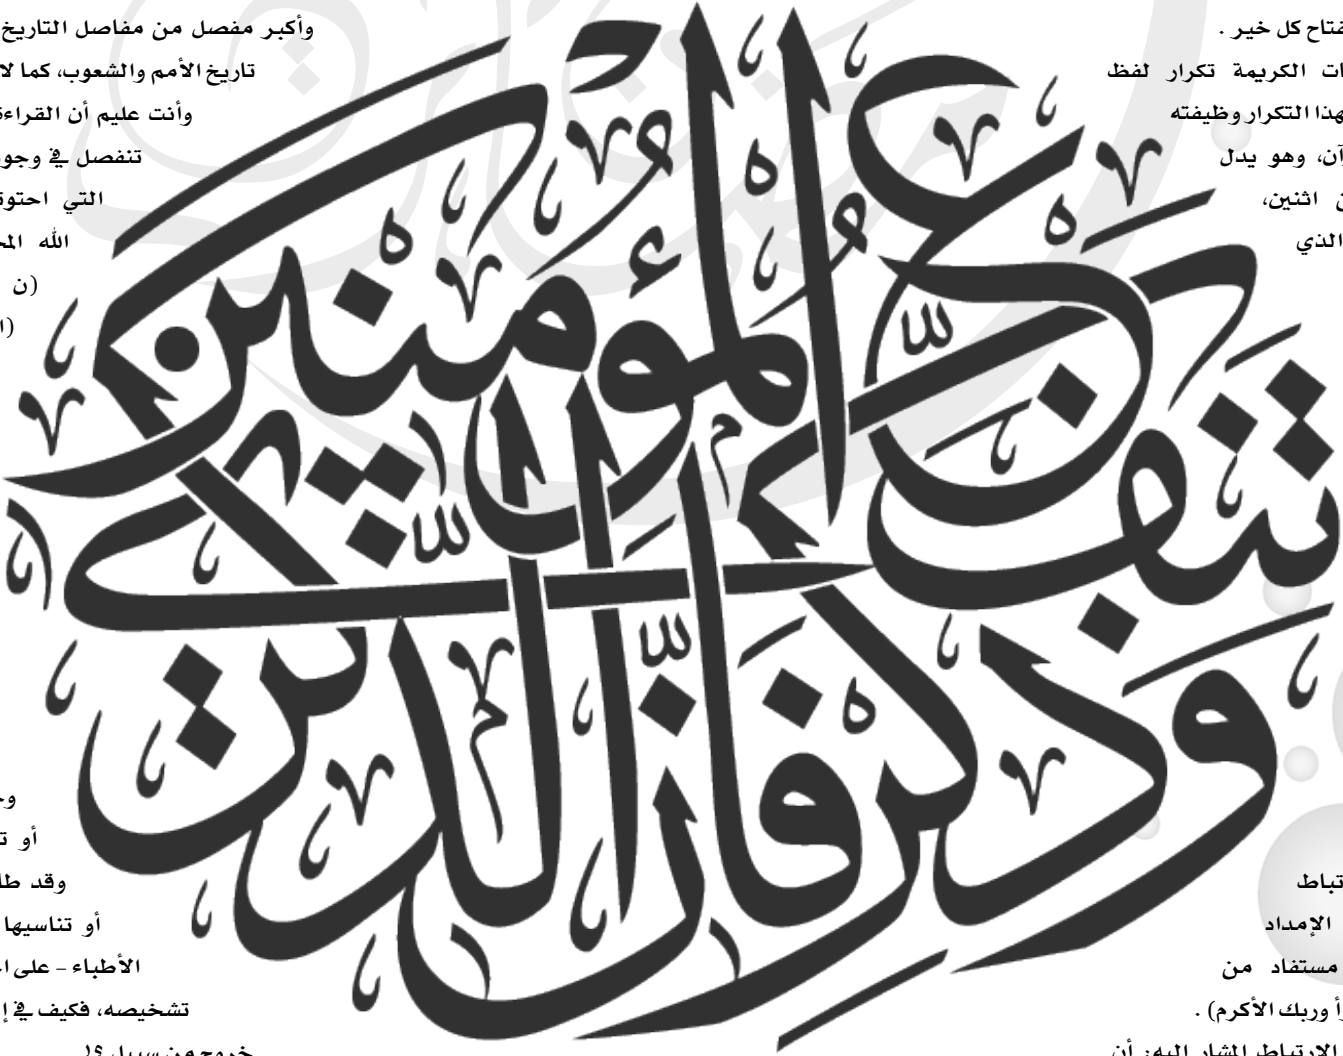 فتاح كل خير .
ات الكريمة تكرار لفظ
هذا التكرار وظيفته
آن، وهو يدل
اثنين،
الذي
وَذَكِّرْ فَإِنَّ الذِّكْرَىٰ تَنفَعُ الْمُؤْمِنِينَ
تباط
الإمداد
مستفاد من
أ وربك الأكرم) .
الارتباط المشار إليه: أن
وأكبر مفصل من مفاصل التاريخ
تاريخ الأمم والشعوب، كما لا
وأنت عليم أن القراءة
تنفصل في وجو
التي احتو
الله الم
(ن
(ا
أو ت
وقد طا
أو تناسيها
الأطباء – على ا
تشخيصه، فكيف في إ
خروج من سبيل ؟!